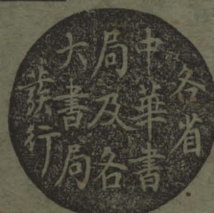 各省
中華書
局及各
大書局
發行